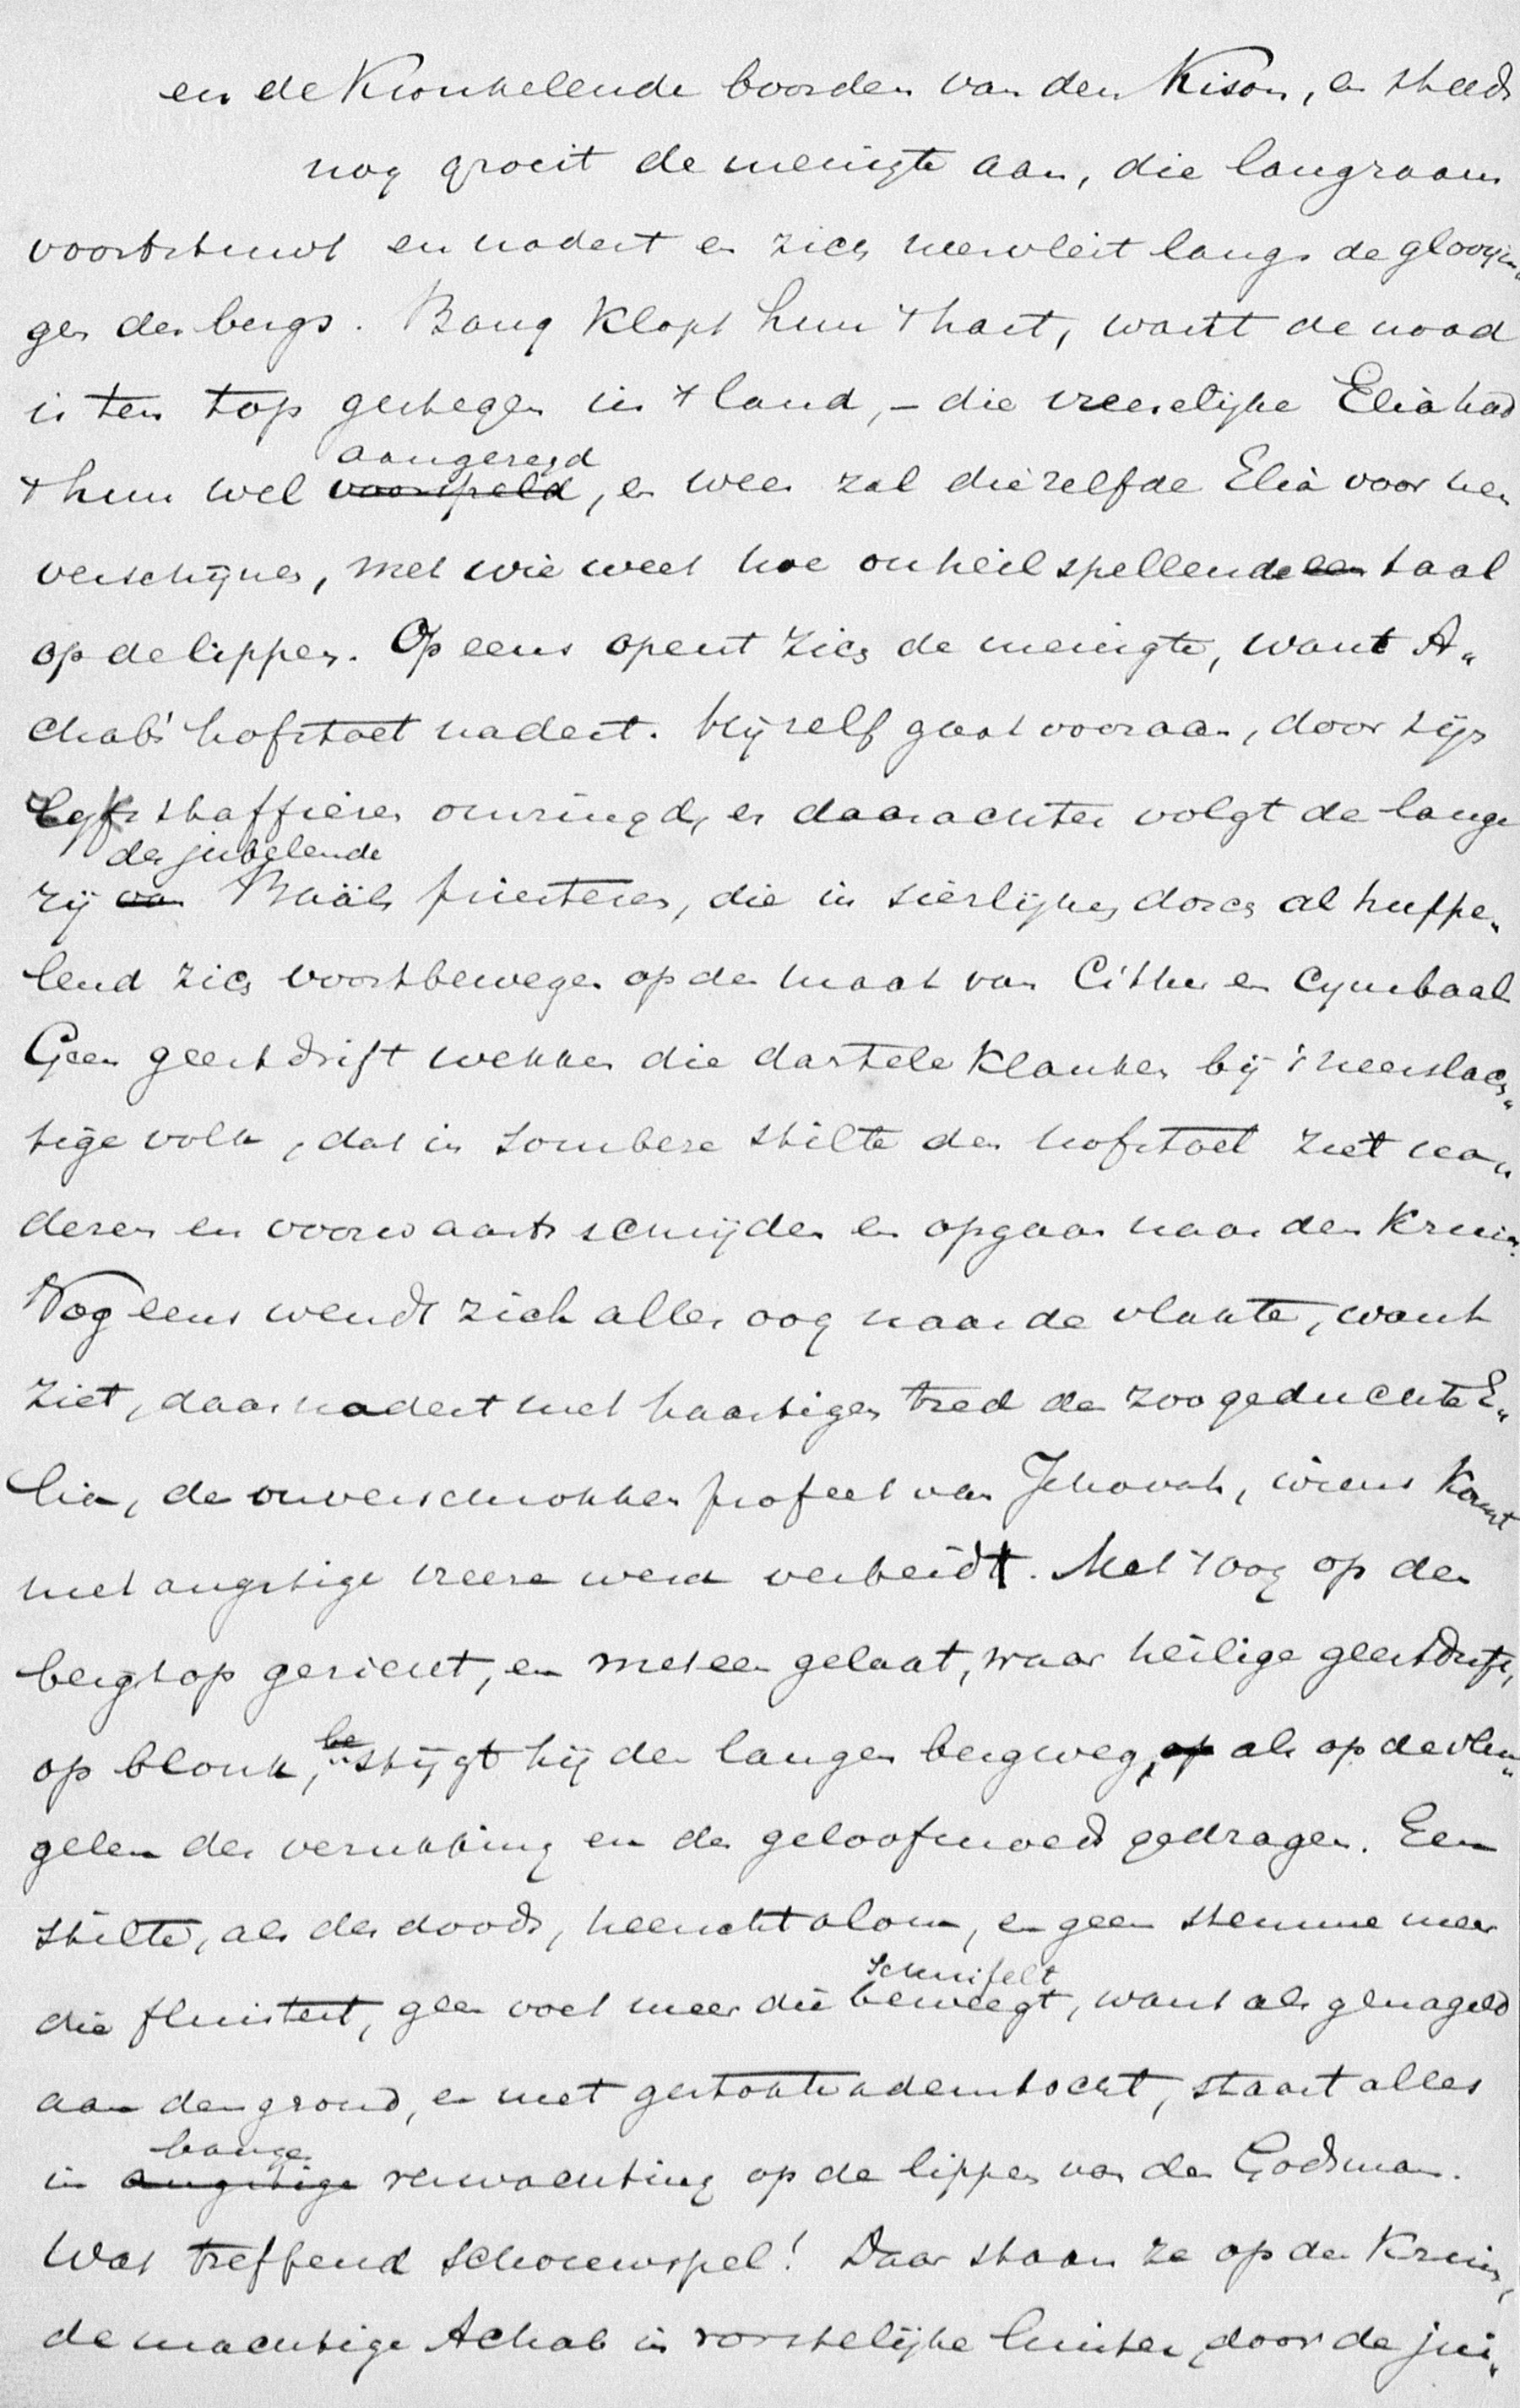 en de kronkelende boorden van den Kison, en steeds
nog groeit de menigte aan, die langzaam
voortstuwt en nadert en zich neervleit langs de glooyin„
gen des bergs. Bang klopt hun 't hart, want de nood
is ten top gestegen in 't land, – die vreeselijke Elia had
aangezegd
't hun wel voorspeld, en weer zal diezelfde Elia voor hen
verschijnen, met wie weet hoe onheilspellende een taal
op de lippen. Op eens opent zich de menigte, want A„
chab's hofstoet nadert. Hij zelf gaat vooraan, door zijn
lijfstaffieren omringd, en daarachter volgt de lange
der jubelende
rij van Baäls priesteren, die in sierlijken dosch al huppe„
lend zich voortbewegen op de maat van Cither en Cymbaal
Geen geestdrift wekken die dartele klanken bij 't neerslach„
tige volk, dat in sombere stilte den hofstoet ziet na„
deren en voorwaarts schrijden en opgaan naar den kruin.
Nog eens wendt zich aller oog naar de vlakte, want
ziet, daar nadert met haastigen tred de zoo geduchte E„
lia, de onverschrokken profeet van Jehovah, wiens komst
met angstige vreeze werd verbeidt. Met 't oog op den
bergtop gericht, en met een gelaat, waar heilige geestdrift,
be
op blonk, „stijgt hij den langen bergweg, op als op de vleu„
gelen der verrukking en des geloofsmoeds gedragen. Een
stilte, als des doods, heerscht alom, en geen stemme meer
schuifelt
die fluistert, geen voet meer die beweegt, want als genageld
aan den grond, en met gestokten ademtocht, staart alles
bange
in angstige verwachting op de lippen van den Godsman.
Wat treffend schouwspel! Daar staan ze op den kruin,
de machtige Achab in vorstelijke luister, door de jui„